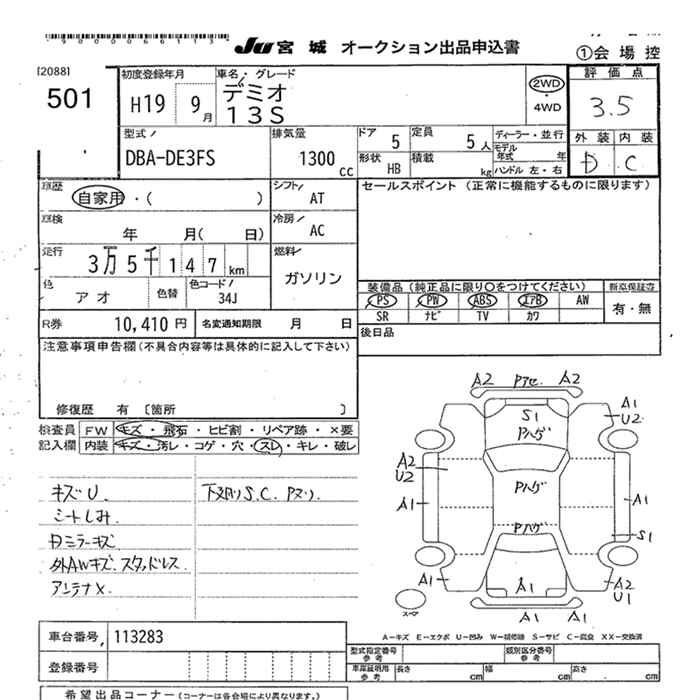 9000066113
JU 宮城 オークション出品申込書
①会場控
[2088]
501
初度登録年月
H19 9月
車名・グレード
デミオ
13S
2WD
・4WD
評価点
3.5
型式
DBA-DE3FS
排気量
1300 cc
ドア 5
定員 5人
形状 HB
積載 kg
ディーラー・並行
モデル年式 年
ハンドル 左・右
外装 内装
D C
車歴
自家用・( )
シフト AT
セールスポイント (正常に機能するものに限ります)
車検 年 月( 日)
冷房 AC
走行 3万5千147km
燃料 ガソリン
色 アオ
色替
色コード 34J
装備品(純正品に限り○をつけてください)
新車保証書
PS PW ABS エアB AW
SR ナビ TV カワ
有・無
R券 10,410円
名変通知期限 月 日
後日品
注意事項申告欄(不具合内容等は具体的に記入して下さい)
修復歴 有 〔箇所 〕
検査員記入欄
FW キズ・飛石・ヒビ割・リペア跡・×要
内装 キズ・汚レ・コゲ・穴・スレ・キレ・破レ
キズU.
シートしみ.
日ミラーキズ
外AWキズ.スタッドレス.
アンテナX.
下廻りS.C.Pヌリ.
A2 Pアセ. A2
S1
Pハゲ
A1
U2
A2
U2
A1
Pハゲ
A1
Pハゲ
S1
A1
A1
A2
U1
A1 A1
スペア
A-キズ E-エクボ U-凹み W-補修跡 S-サビ C-腐食 XX-交換済
車台番号 113283
登録番号
型式指定番号 参考
類別区分番号 参考
車庫証明用 参考
長さ cm
幅 cm
高さ cm
希望出品コーナー(コーナーは各会場により異なります。)